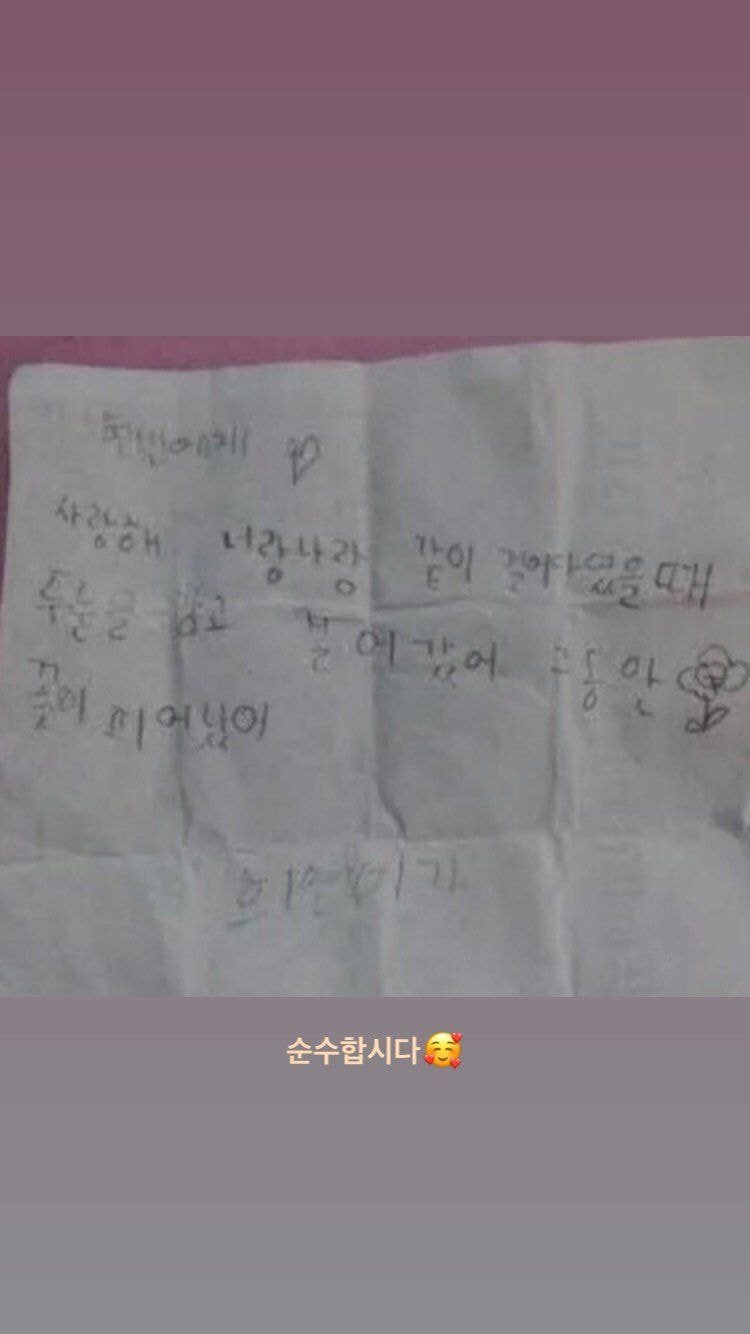 현빈에게 ♡
사랑해 너랑나랑 같이 걸어다녔을때
두눈을 감고 걸어갔어 그동안
꽃이 피어났어
순수합시다🥰